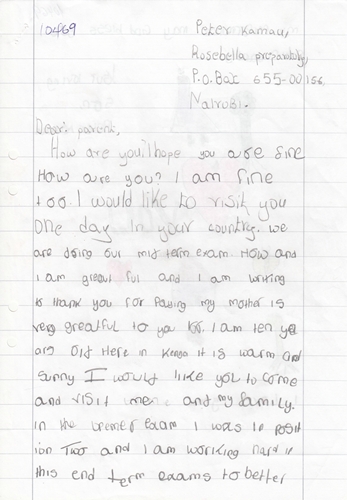 10469
Peter Kamau,
Rosebella preparatory,
P.O.Box 655-00156
Nairobi.
Dear parent,
How are you? I hope you are fine
How are you? I am fine
too. I would like to visit you
One day in your country. we
are doing our mid term exam. Now and
I am greatful and I am writing
to thank you for Paying my mother is
very greatful to you too. I am ten ye
ars old Here in Kenya it is warm and
sunny I would like you to come
and visit me and my family.
In the exam I was in posit
ion Two and I am working hard in
this end term exams to better